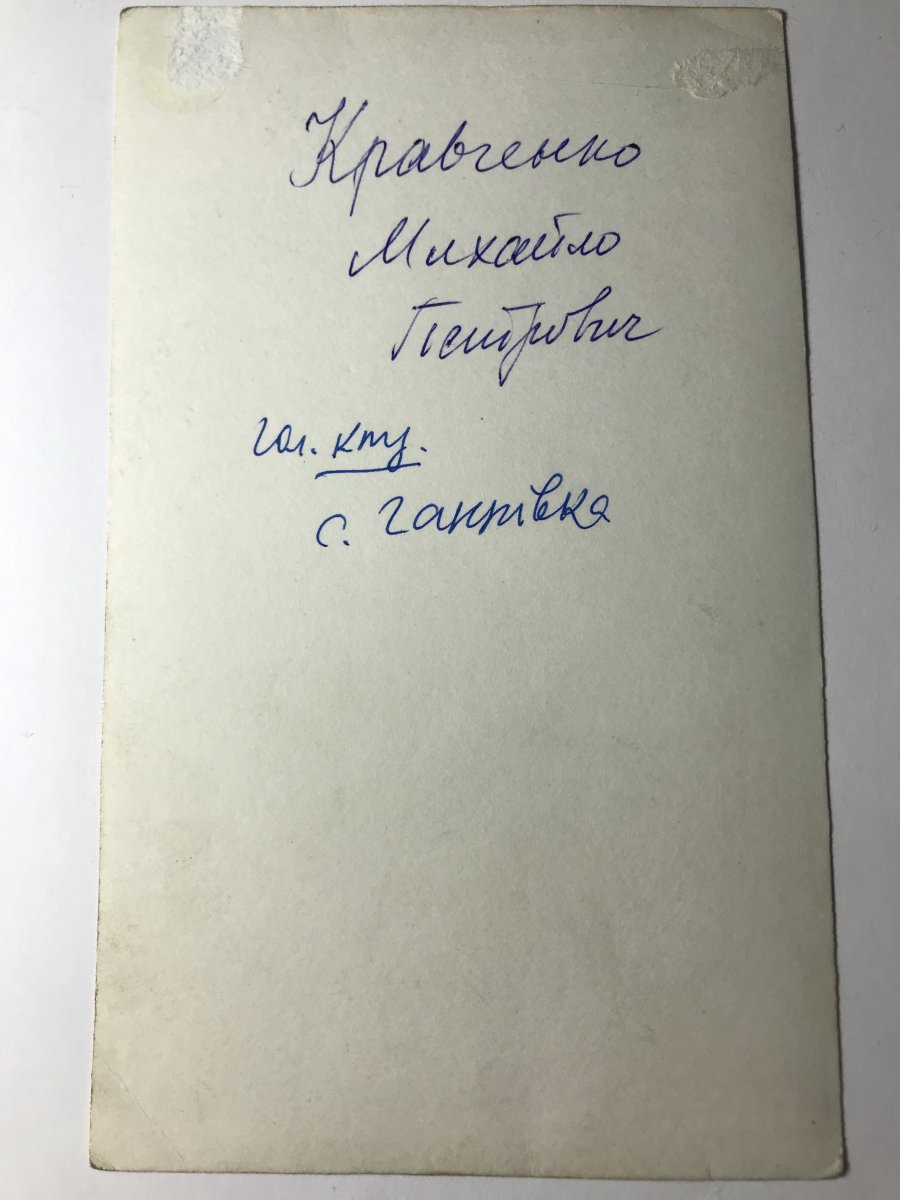 Кравченко
Михайло
Петрович
гол. кпу.
с. Ганнівка